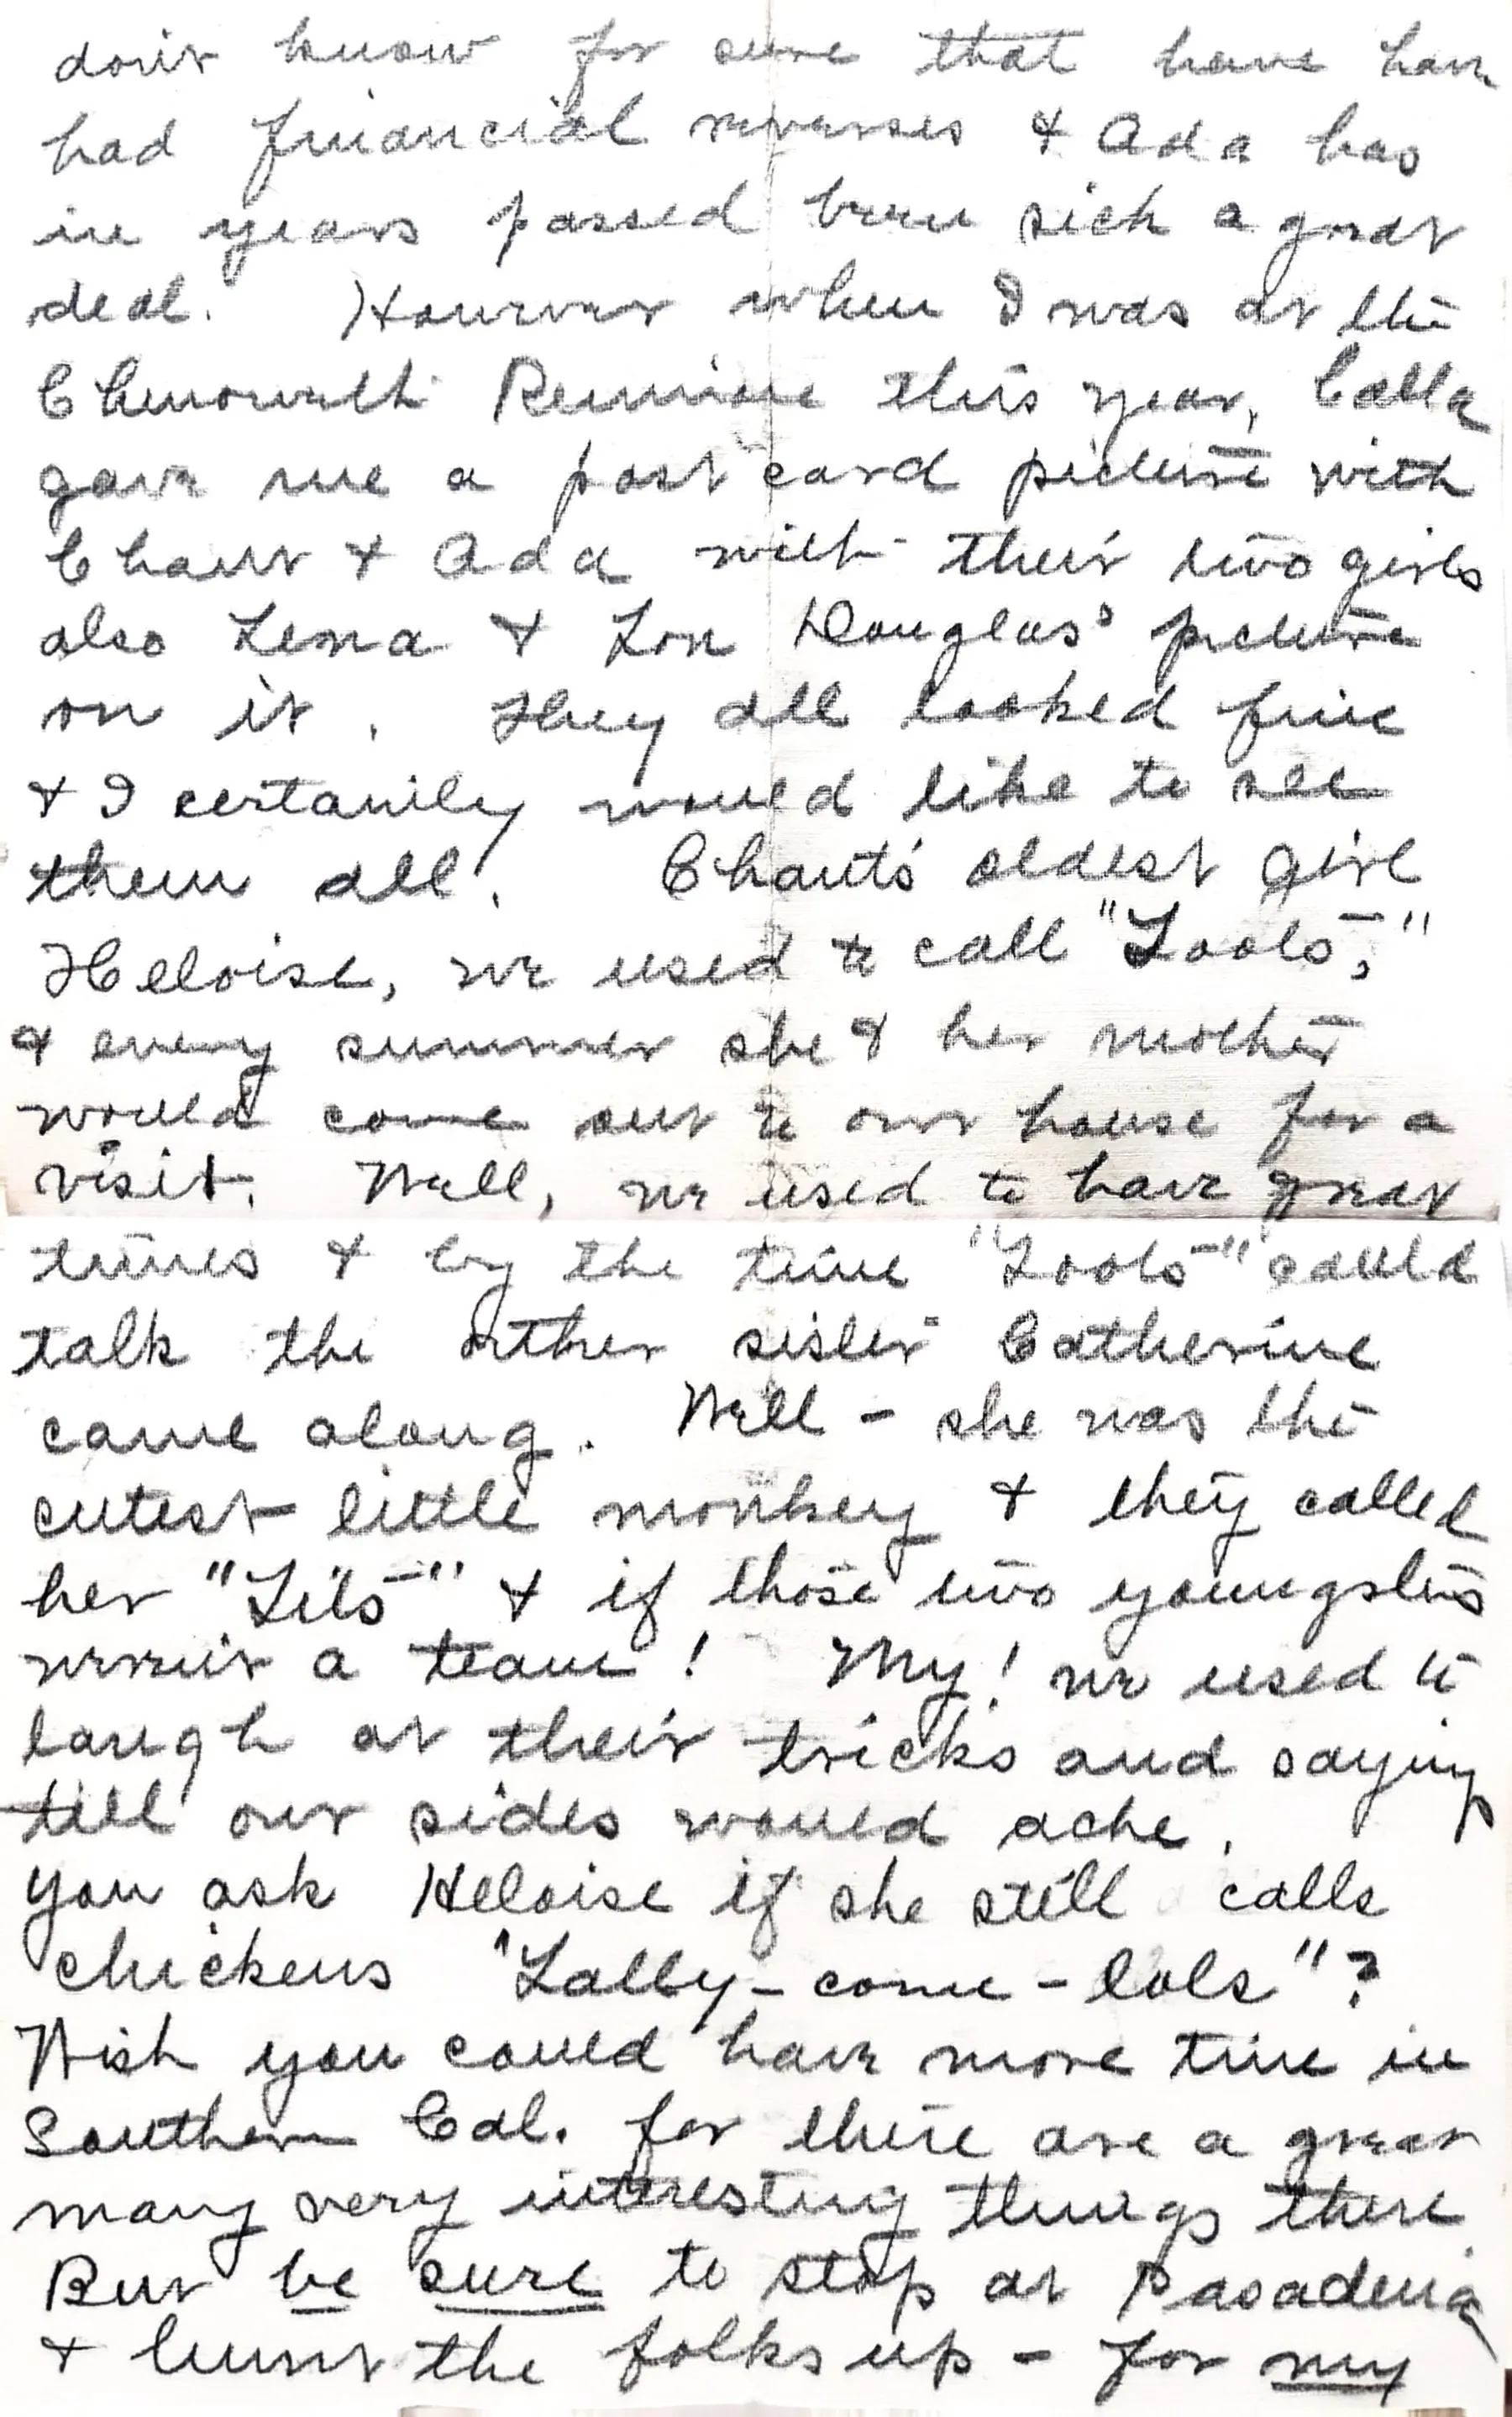 don't know for sure that have have
had financial reverses & Ada has
in years passed been sick a great
deal. However when I was at the
Chenoweth Reunion this year, Calla
gave me a post card picture with
Chaut & Ada with their two girls
also Lena & Lon Douglas' picture
on it. They all looked fine
& I certainly would like to see
them all. Chaut's oldest girl
Heloise, we used to call "Lools,"
& every summer she & her mother
would come out to our house for a
visit. Well, we used to have great
times & by the time "Lools" could
talk the other sister Catherine
came along. Well - she was the
cutest little monkey & they called
her "Lils" & if those two youngsters
weren't a team! My! we used to
laugh at their tricks and sayings
till our sides would ache.
You ask Heloise if she still calls
chickens "Lally-come-lols"?
Wish you could have more time in
Southern Cal. for there are a great
many very interesting things there.
But be sure to stop at Pasadena
& hunt the folks up - for my